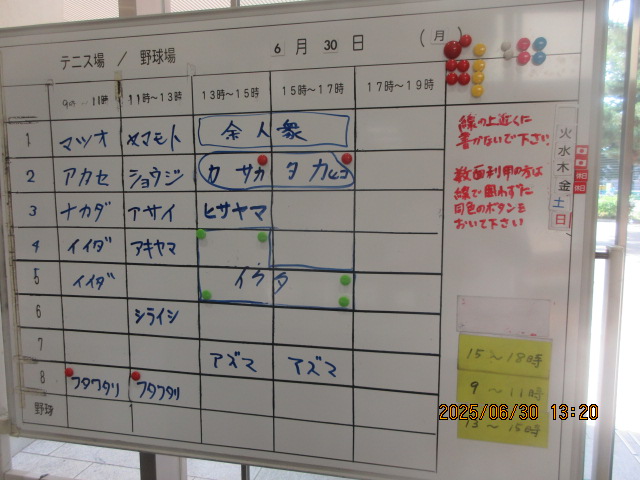 テニス場 / 野球場 6月 30日 (月)
9時〜11時 11時〜13時 13時〜15時 15時〜17時 17時〜19時
1 マツオ ヤマモト 余人衆
2 アカセ ショウジ
3 ナカダ アサイ ヒサヤマ
4 イイダ アキヤマ
5 イイダ イクタ
6 シライシ
7 アズマ アズマ
8 フタワタリ フタワタリ
野球
線の上近くに
書かないで下さい
数面利用の方は
線で囲わずに
同色のボタンを
おいて下さい
火
水
木
金
土
日
15〜18時
9〜11時
13〜15時
2025/06/30 13:20